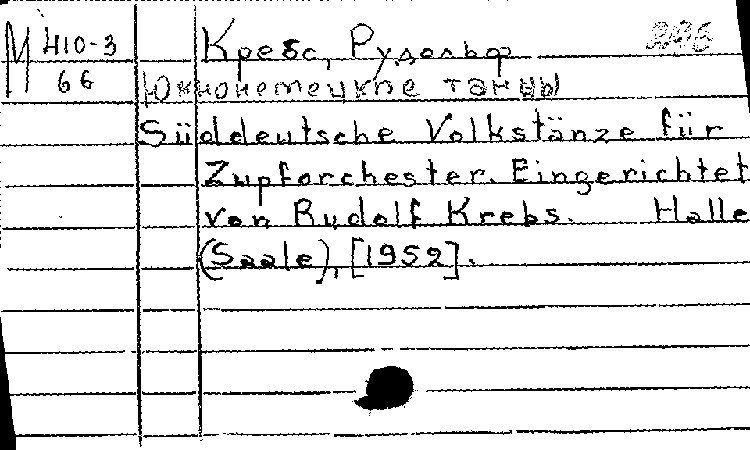 М 410-3
66
Кребс, Рудольф
Южнонемецкие танцы
Süddeutsche Volkstänze für
Zupforchester. Eingerichtet
von Rudolf Krebs. Halle
(Saale), [1952].